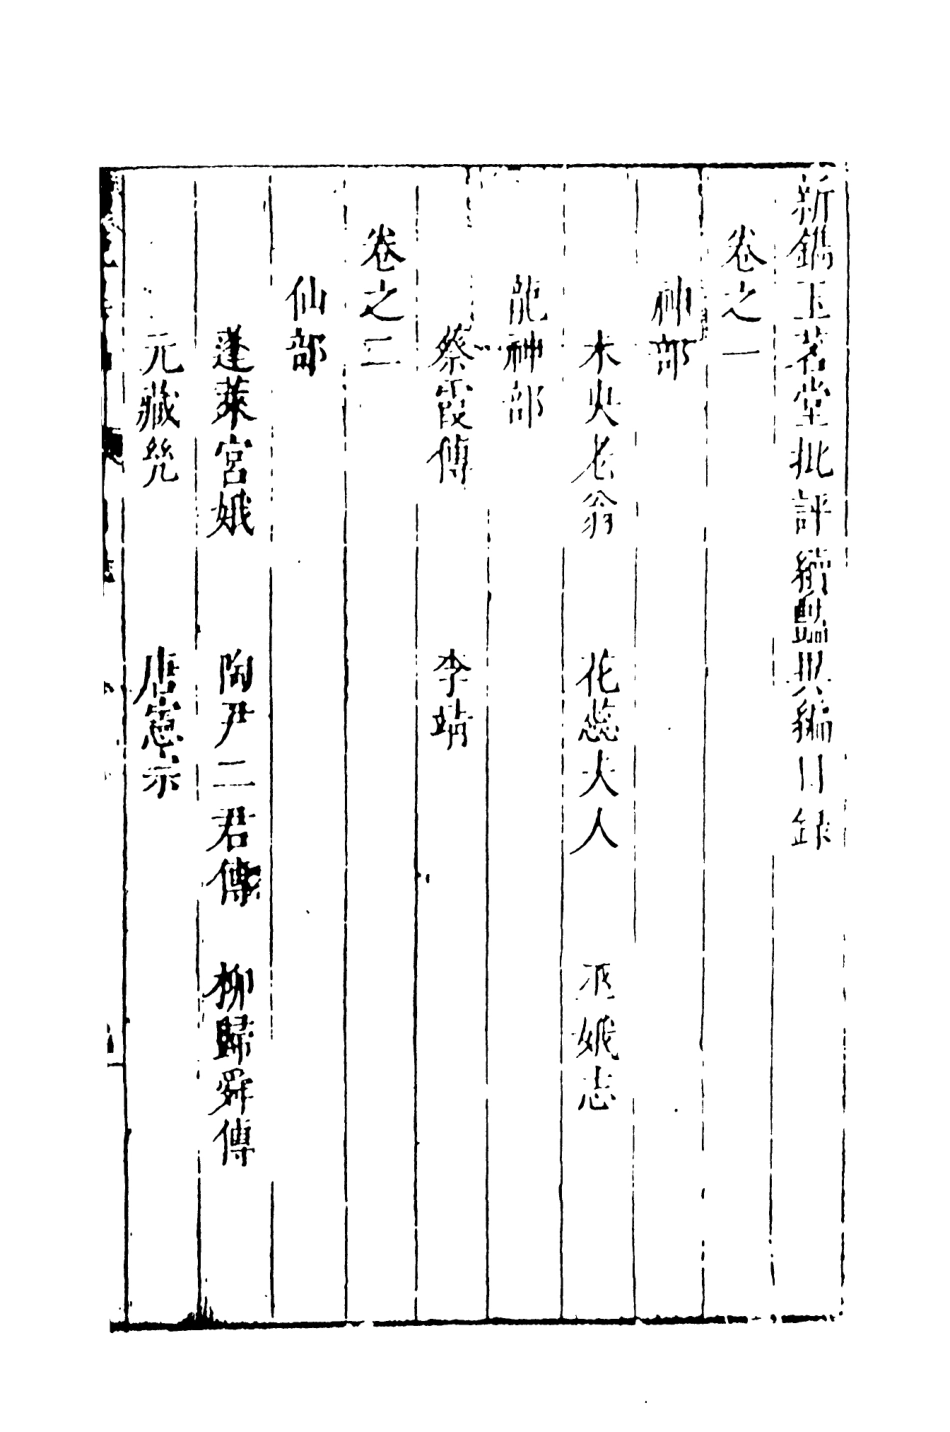 新鐫玉茗堂批評續豔異編目錄
卷之一
神部
木央老翁 花蕊夫人 丞娥志
龍神部
蔡霞傳 李靖
卷之二
仙部
蓬萊宮娥 陶尹二君傳 柳歸舜傳
元藏㡬 唐憲宗